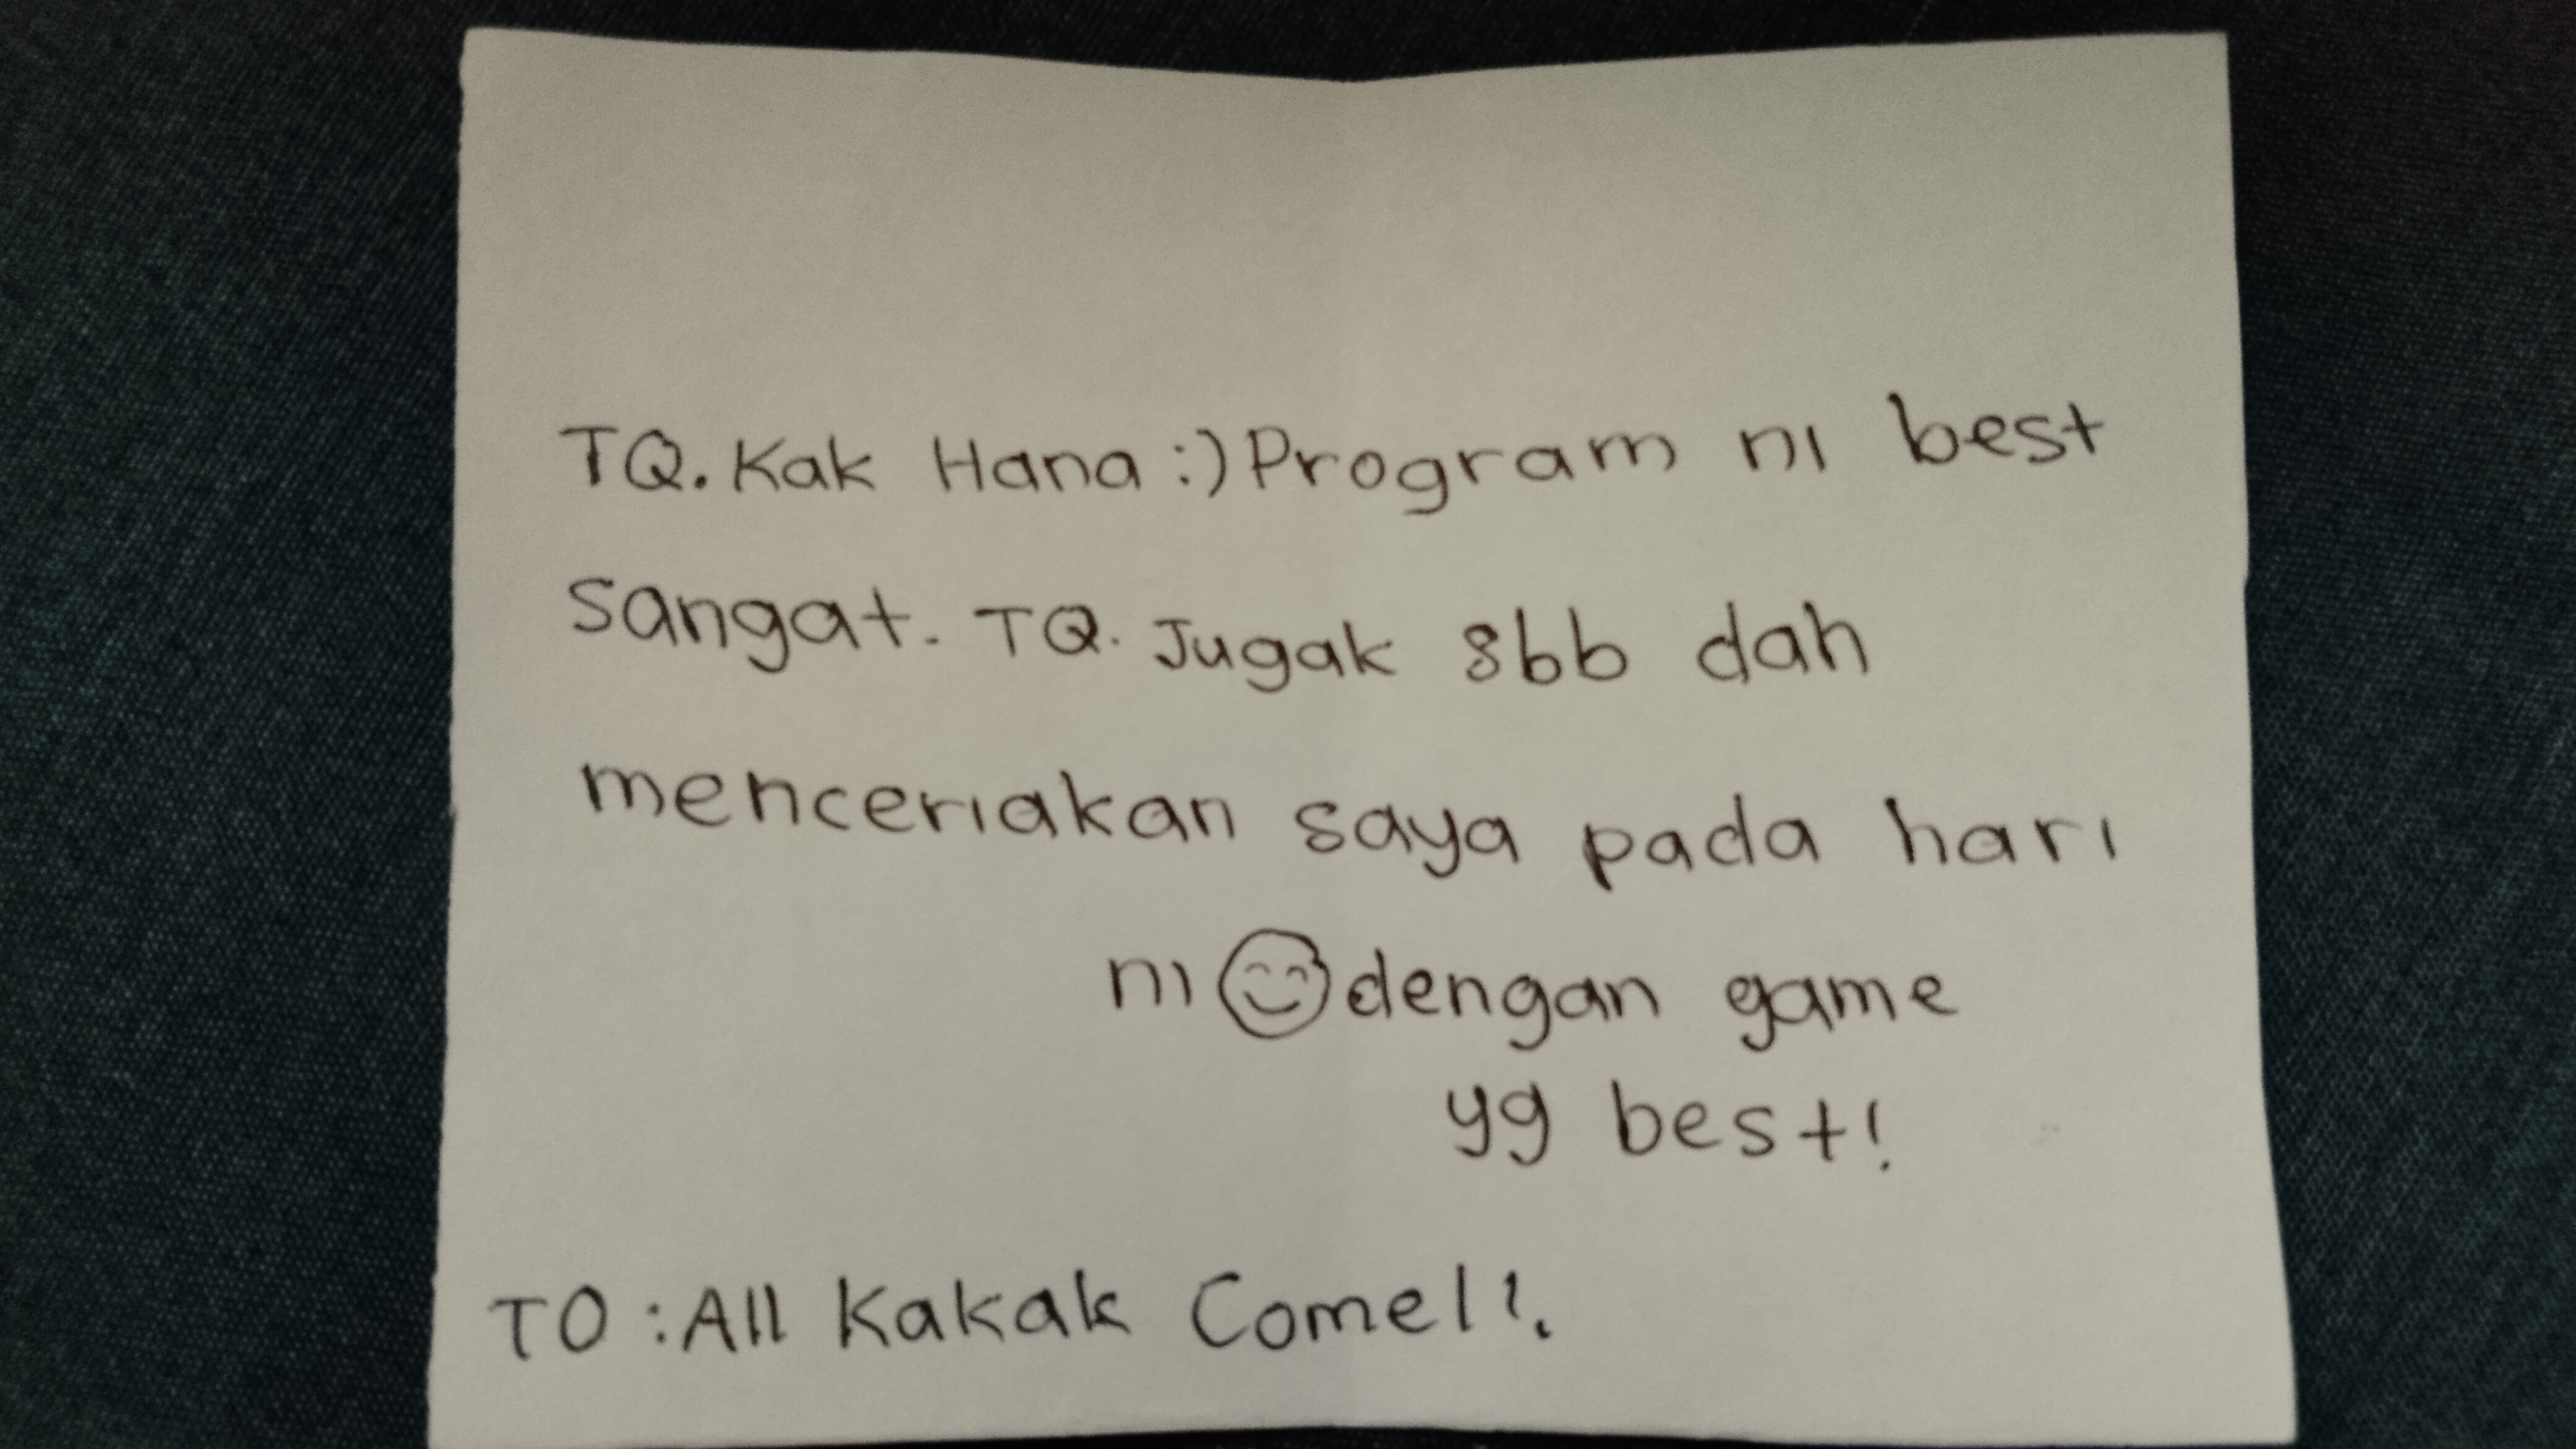 TQ. Kak Hana :) Program ni best
sangat. TQ. Jugak sbb dah
menceriakan saya pada hari
ni 😊 dengan game
yg best!
TO : All Kakak Comel!.